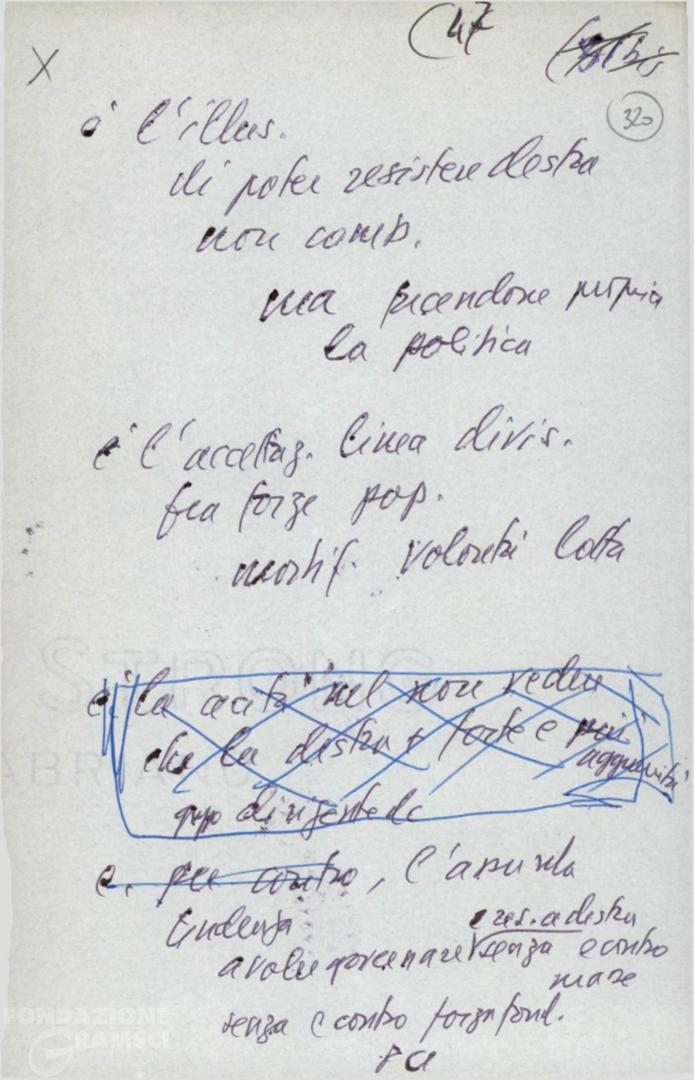 (47
X
320
è l'illus.
di poter resistere destra
non comb.
ma facendone propria
la politica
è l'accettaz. linea divis.
fra forze pop.
mortif. volontà lotta
è la cecità nel non vedere
che la destra + forte e più
agguerrita
gruppo dirigente dc
e. per contro, l'assurda
tendenza
e res. a destra
a voler governare senza e contro
masse
senza e contro forza fond.
PCI
STRONG
FABRIANO
FONDAZIONE
GRAMSCI